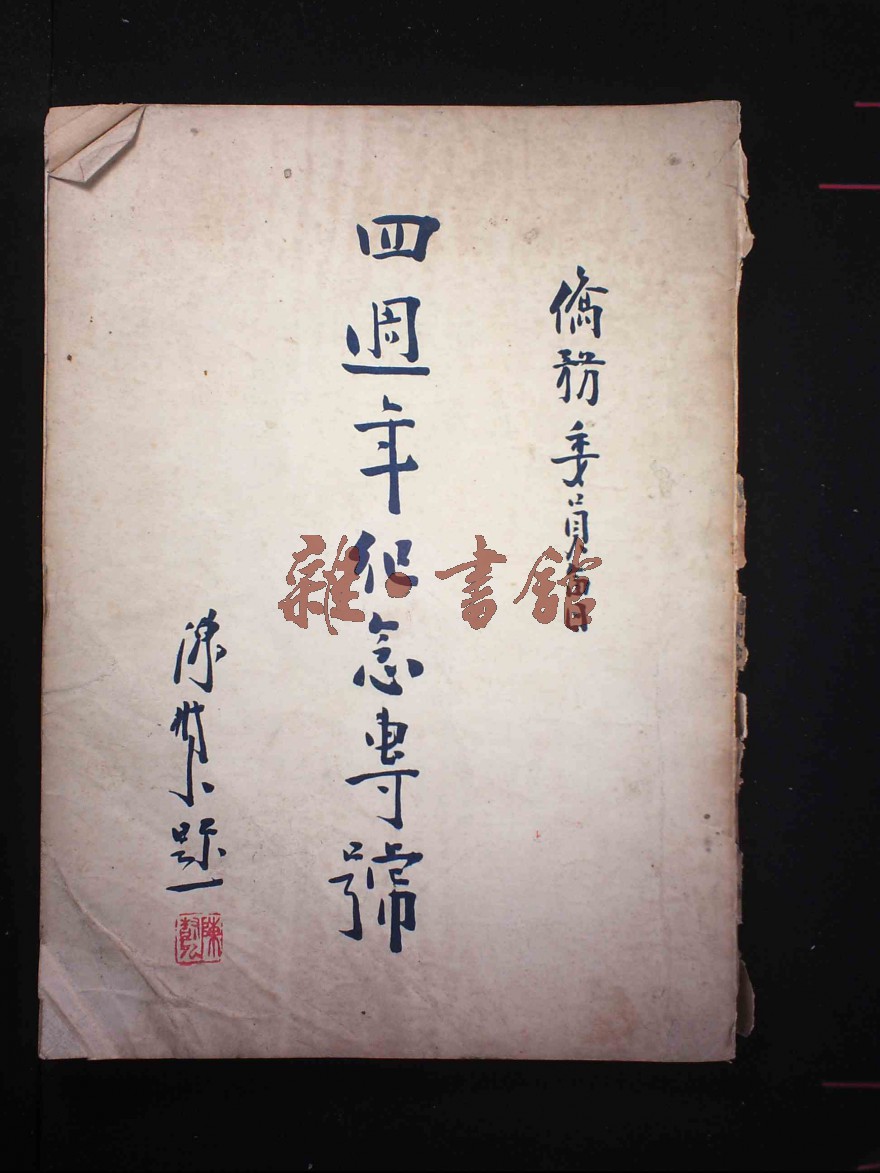 僑務委員會
四週年紀念專號
陳樹人題
雜·書館